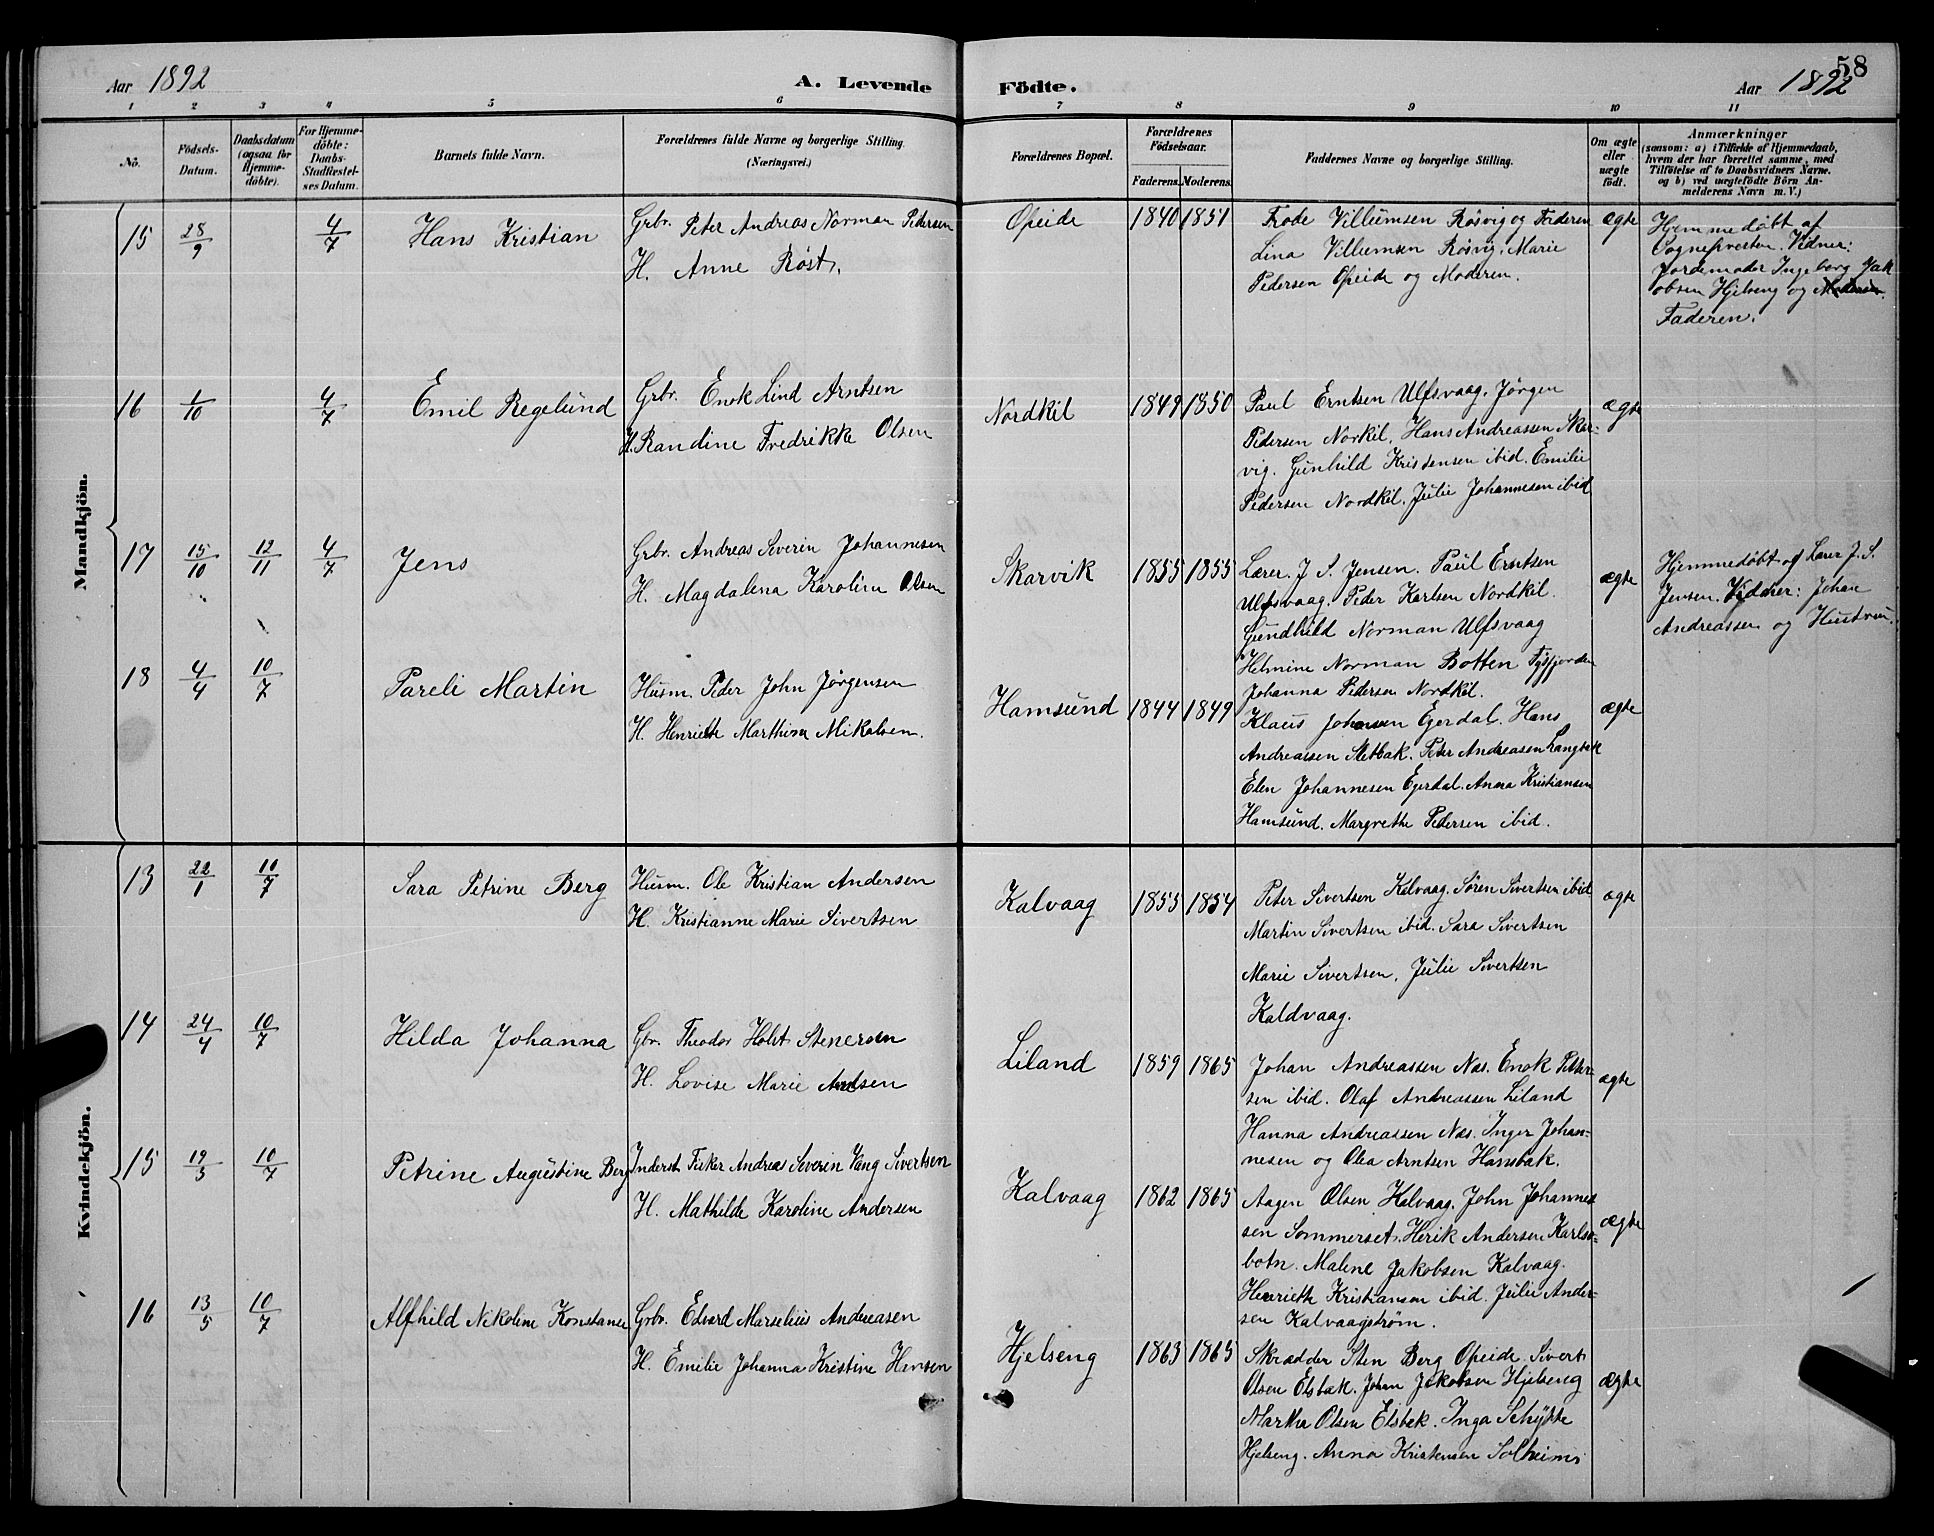 Aar 1892
A. Levende
Födte.
Aar 1892
58
1 2 3 4 5 6 7 8 9 10 11
No.
Födsels-
Datum.
Daabsdatum
(ogsaa for
Hjemme-
döbte).
For Hjemme-
döbte:
Daabs-
Stadfæstel-
ses Datum.
Barnets fulde Navn.
Forældrenes fulde Navne og borgerlige Stilling.
(Næringsvei.)
Forældrenes Bopæl.
Forældrenes
Födselsaar.
Faderens. Moderens.
Faddernes Navne og borgerlige Stilling.
Om ægte
eller
uægte
födt.
Anmærkninger
(saasom: a) i Tilfælde af Hjemmedaab,
hvem der har forrettet samme, med
Tilföielse af to Daabsvidners Navne.
og b) ved uægtefödte Börn An-
melderens Navn m. V.)
Mandkjön.
15 28/9 4/7 Hans Kristian
Grbr. Peter Andreas Norman Pedersen
H. Anne Röst.
Opeide 1840 1851
Frode Villumsen Rösvig og Faderen
Lina Villumsen Rösvig. Marie
Pedersen Opeide og Moderen.
ægte
Hjemmedöbt af
Sognepresten. Vidner:
Jordemoder Ingeborg Jak
obsen Hjelseng og Moderen.
Faderen.
16 1/10 4/7 Emil Regelund
Grbr. Enok Lind Arntsen
H. Randine Fredrikke Olsen
Nordkil 1849 1850
Paul Erntsen Ulfsvaag. Jörgen
Pedersen Norkil. Hans Andreassen Skar-
vig. Gunhild Kristensen ibid. Emilie
Pedersen Nordkil. Julie Johannesen ibid
ægte
17 15/10 12/11 4/7 Jens
Grbr. Andreas Severin Johannesen
H. Magdalena Karoline Olsen
Skarvik 1855 1855
Lærer. J. S. Jensen. Paul Erntsen
Ulfsvaag. Peder Karlsen Nordkil.
Gundhild Norman Ulfsvaag
Helmine Norman Botten Tysfjorden
Johanna Pedersen Nordkil.
ægte
Hjemmedöbt af Lærer J. S.
Jensen. Vidner: Johan
Andreassen og Hustru.
18 4/4 10/7 Pareli Martin
Husm. Peder John Jörgensen
H. Henriette Marthina Mikalsen.
Hamsund 1844 1849
Klaus Johansen Egerdal. Hans
Andreassen Sletbak. Peter Andreasen Langbak
Elen Johannesen Egerdal. Anna Kristiansen
Hamsund. Margrethe Pedersen ibid.
ægte
Kvindekjön.
13 22/1 10/7 Sara Petrine Berg
Husm. Ole Kristian Andersen
H. Kristianne Marie Sivertsen
Kalvaag 1855 1854
Peter Sivertsen Kalvaag. Sören Sivertsen ibid
Martin Sivertsen ibid. Sara Sivertsen
Marie Sivertsen, Julie Sivertsen
Kaldvaag.
ægte
14 24/4 10/7 Hilda Johanna
Gbr. Theodor Holst Stenersen
H. Lovise Marie
Liland 1859 1865
Johan Andreassen Næs. Enok Peter-
sen ibid. Olaf Andreassen Liland
Hanna Andreassen Næs. Inger Johan-
nesen og Olea Arntsen Hansbak.
ægte
15 19/5 10/7 Petrine Augustine Berg
Inderst Fisker Andreas Severin Vang Sivertsen
H. Mathilde Karoline Andersen
Kalvaag 1862 1865
Aagen Olsen Kalvaag. John Johannes
sen Sommerset. Herik Andersen Karlsö-
botn. Malene Jakobsen Kalvaag.
Henriette Kristiansen ibid. Julie Ander-
sen Kalvaagström.
ægte
16 13/5 10/7 Alfhild Nikoline Konstanse
Grbr. Edvard Marselius Andreasen
H. Emilie Johanna Kristine Hansen
Hjelseng 1863 1865
Skrædder Sten Berg Opeide. Sivert
Olsen Elsbak. Johan Jakobsen Hjelseng
Martha Olsen Elsbak. Inga Schytte
Hjelseng. Anna Kristensen Solheim
ægte